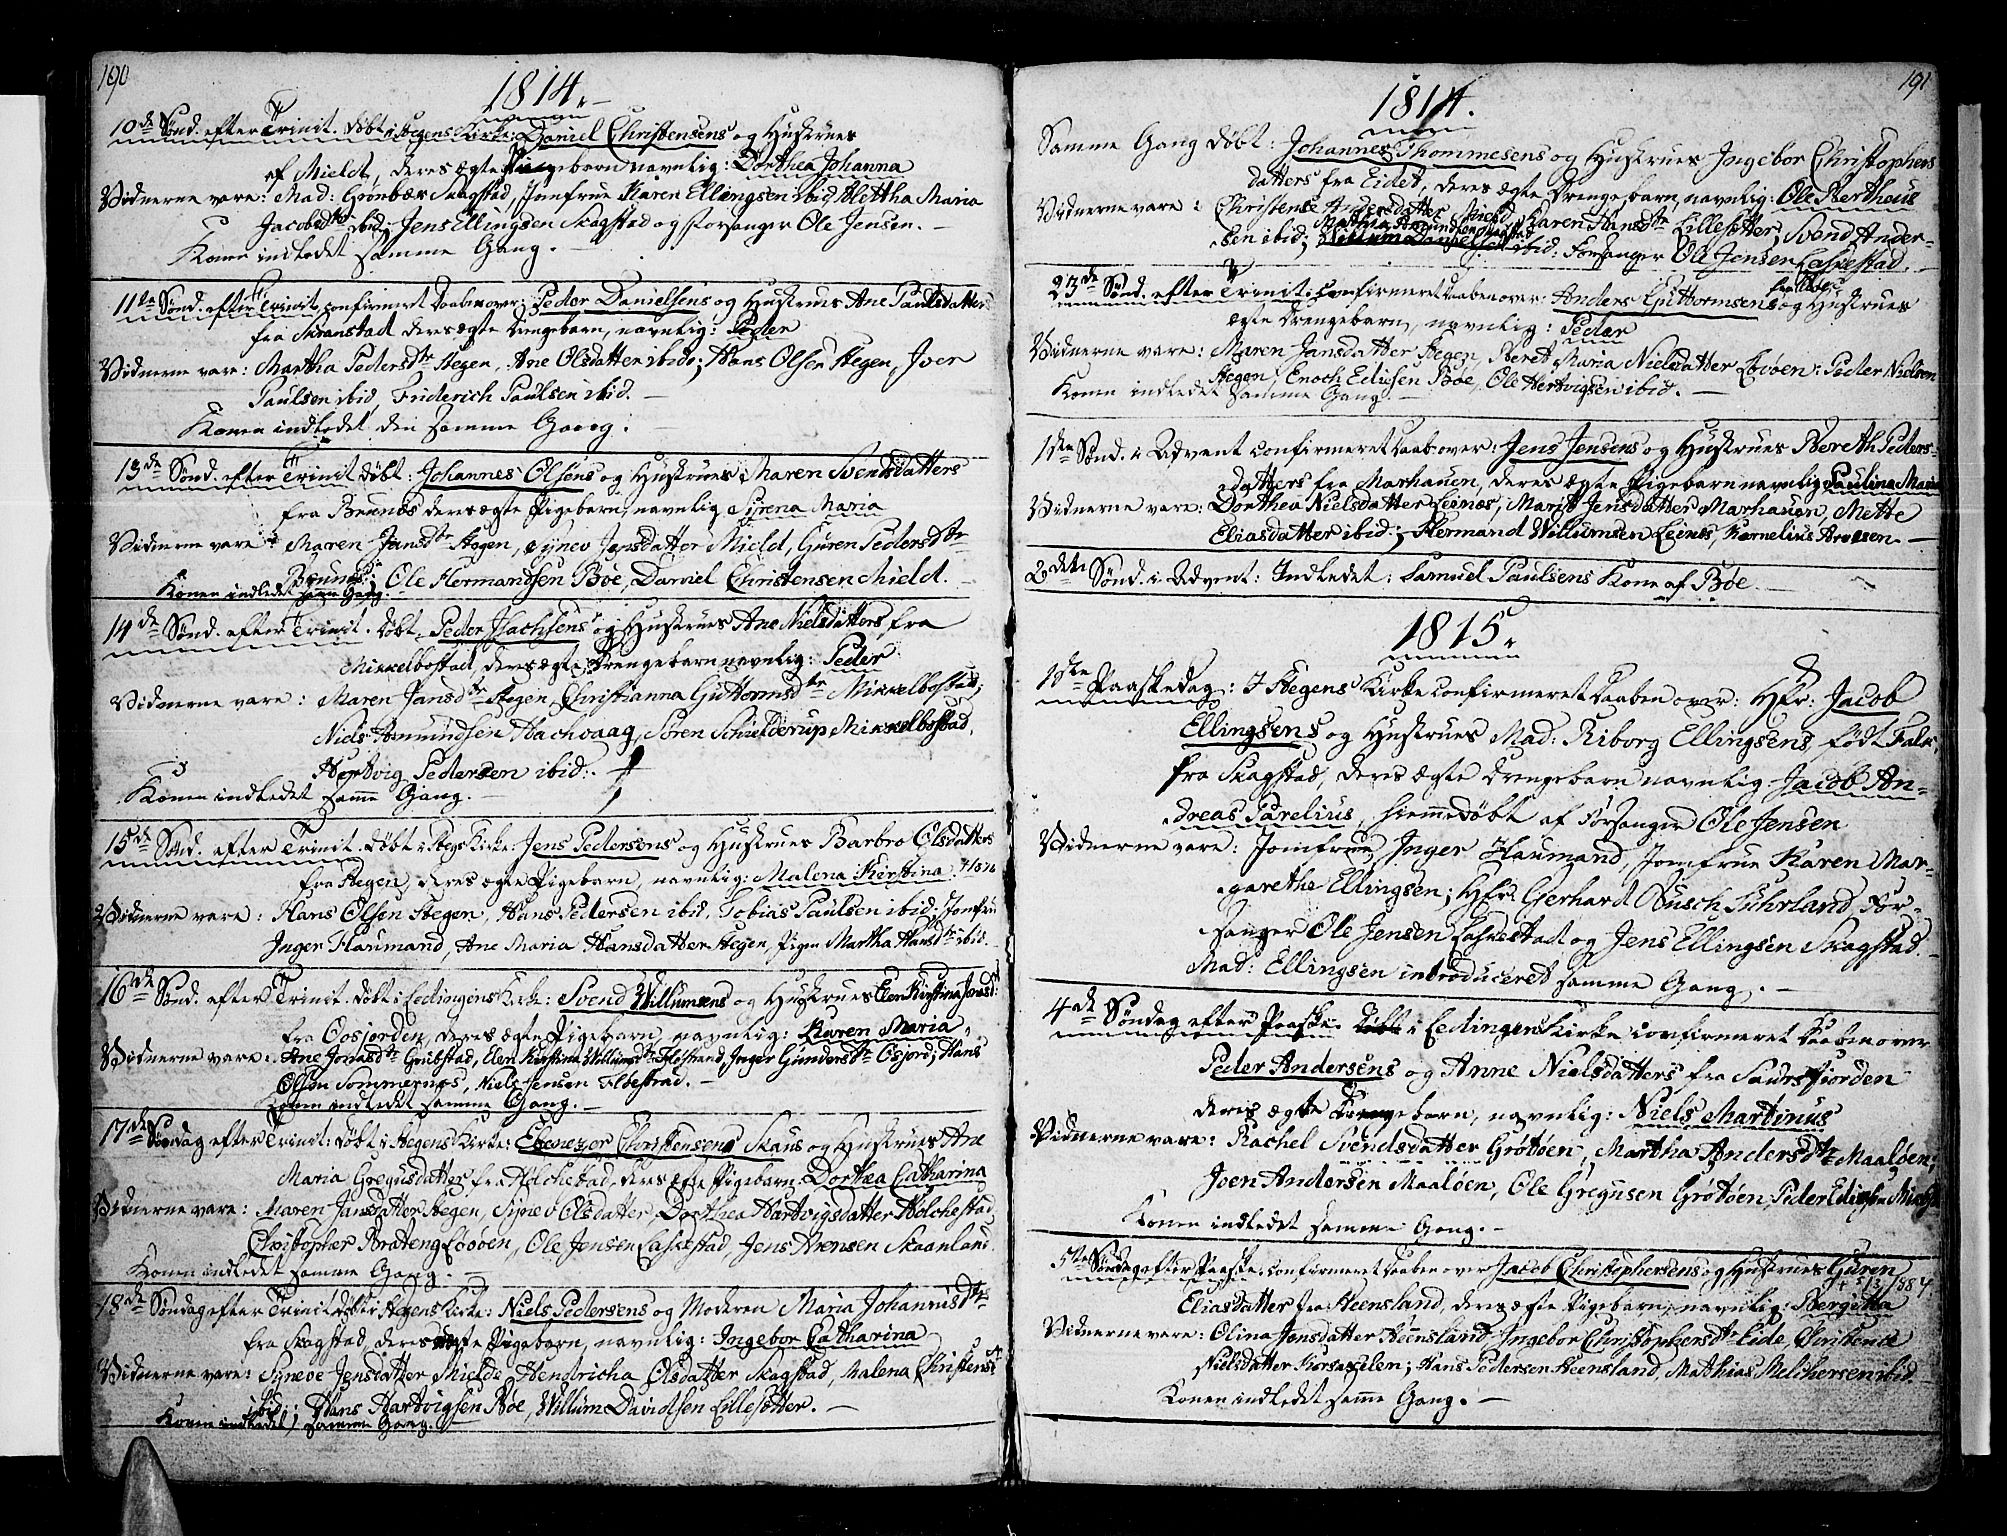 190
1814.
10de Sønd. efter Trinit. Døbt i Stegens Kirke: Daniel Christensens og Hustrues
af Mield, deres ægte Pigebarn navnlig: Dorthea Johanna
Vidnerne vare: Mad: Grønbær Skagstad, Jomfrue Karen Ellingsen ibid, Aletha Maria
Jacobsdtr ibid; Jens Ellingsen Skagstad og Forsanger Ole Jensen.
Konen indledet samme Gang.
11te Sønd. efter Trinit. confirmeret Daaben over: Peder Danielsens og Hustrues Ane Paulsdatter
fra Skranstad deres ægte Drengebarn, navnlig: Peder
Vidnerne vare: Martha Pedersdtr Stegen, Ane Olsdatter ibid; Hans Olsen Stegen, Iver
Paulsen ibid, Friderich Paulsen ibid.
Konen indledet den samme Gang.
13de Sønd. efter Trinit døbt: Johannes Olsens og Hustrues Maren Svendsdatters
fra Brunøs deres ægte Pigebarn, navnlig Sirena Maria
Vidnerne vare: Maren Jansdtr Stegen, Synev Jensdatter Mield, Guren Pedersdtr
Brunøs; Ole Hermandsen Bøe, Daniel Christensen Mield.
Konen indledet samme Gang.
14de Sønd. efter Trinit. Døbt Peder Isachsens og Hustrues Ane Nielsdatters fra
Mikkelbostad, deres ægte Drengebarn navnlig: Peder
Vidnerne vare: Maren Jansdtr Stegen, Christianna Guttormsdtr Mikkelbostad;
Niels Amundsen Hachvaag, Sören Schielderup Mikkelbostad,
Hertvig Pedersen ibid:
Konen indledet samme Gang.
15de Sønd. efter Trinit. Døbt i Stegs Kirke: Jens Pedersens og Hustrues Barbro Olsdatters
fra Stegen, deres ægte Pigebarn, navnlig: Malena Kirstina.
Vidnerne vare: Hans Olsen Stegen, Hans Pedersen ibid, Tobias Paulsen ibid; Jomfru
Inger Haumand, Ane Maria Hansdatter Stegen, Pigen Martha Hansdtr ibid.
16de Sønd. efter Trinit. Døbt i Ledingens Kirke: Svend Willumsens og Hustrues Elen Kirstina Jonsdtr
fra Oosjorden, deres ægte Pigebarn, navnlig: Karen Maria
Vidnerne vare: Ane Jonasdtr Grubstad, Elen Kirstina Willumsdtr Fløstrand, Inger Gundersdtr Osjord; Hans
Olsen Sommernøs, Niels Jensen Fløestrad.
Konen indledet samme Gang.
17de Søndag efter Trinit: Døbt i Stegens Kirke: Ebenezer Christensens Skaus og Hustrues Ane
Maria Gregusdatter fra Holchestad, deres ægte Pigebarn. Dorthea Catharina
Vidnerne vare: Maren Jansdatter Stegen, Synev Olsdatter, Dorthea Hartvigsdatter Holchestad,
Christopher Brateng Lovøen, Ole Jensen Laskestad, Jens Arensen Skaanland
Konen indledet samme Gang.
18de Søndag efter Trinit døbt i Stegens Kirke: Niels Pedersens og Moderen Maria Johannisdtr
fra Skagstad, deres uægte Pigebarn, navnlig: Ingebor Catharina
Vidnerne vare: Synøve Jensdatter Mield, Hendricha Olsdatter Skagstad, Malena Christensdtr
ibid; Hans Hartvigsen Bøe, Willum Davidsen Lillesøtter.
Konen indledet samme Gang.
191
1814.
Samme Gang døbt: Johannes Thommesens og Hustrues Ingebor Christophers
datters fra Eidet, deres ægte Drengebarn, navnlig: Ole Bertheus
Vidnerne vare: Christense Andersdatter Mield, Karen Hansdtr Lillesötter, Svend Ander-
sen ibid; Mathias Amundsen Willum Danielsen ibid: Forsanger Ole Jensen Laskestad.
23de Sønd. efter Trinit: confirmeret Daaben over: Anders Guttormsens og Hustrues
ægte Drengebarn, navnlig: Peder
Vidnerne vare: Maren Jansdatter Stegen, Beret Maria Nielsdatter Lovøen: Peder Nielsen
Stegen, Enoch Ediisen Bøe, Ole Hertvigsen ibid.
Konen indledet samme Gang
1ste Sønd. i Advent confirmeret Daab over: Jens Jensens og Hustrues Bereth Peders-
datters fra Marhauen, deres ægte Pigebarn navnlig Paulina Maria
Vidnerne vare: Dorthea Nielsdatter Leenæs, Marit Jensdatter Marhauen, Mette
Eliasdatter ibid; Hermand Willumsen Leenes, Kornelius Arntsen.
2den Sønd. i Advent: Indledet: Samuel Paulsens Kone af Bøe.
1815.
1ste Paaskedag: I Stegens Kirke confirmeret Daaben over: Hr: Jacob
Ellingsens og Hustrues Mad: Riborg Ellingsens, født Falk,
fra Skagstad, deres ægte Drengebarn navnlig Jacob An-
dreas Parelius, hiemmedøbt af Forsanger Ole Jensen
Vidnerne vare: Jomfrue Inger Haumand, Jomfrue Karen Mar-
garethe Ellingsen; Hr: Gerhardt Busch Suhrland, For-
sanger Ole Jensen Laskestad og Jens Ellingsen Skagstad.
Mad: Ellingsen introduceret samme Gang.
4de Søndag efter Paaske. i Ledingens Kirke confirmeret Daaben over
Peder Andersens og Anne Nielsdatters fra Saursfiorden
deres ægte Drengebarn, navnlig: Niels Martinus
Vidnerne vare: Rachel Svendsdatter Grøtøen, Martha Andersdtr Maaløen;
Joen Andersen Maaløen, Ole Gregusen Grøtøen, Peder
Konen indledet samme Gang.
5te Søndag efter Paaske. confirmeret Daaben over Jacob Christophersens og Hustrues Guren
Eliasdatter fra Heensland, deres ægte Pigebarn, navnlig: Bergitta
Vidnerne vare: Olina Jonsdatter Heensland, Ingebor Christophersdtr Eide, Christense
Nielsdatter Korsaxelen; Hans Pedersen Heensland, Mathias Melchersen ibid.
Konen indledet samme Gang.